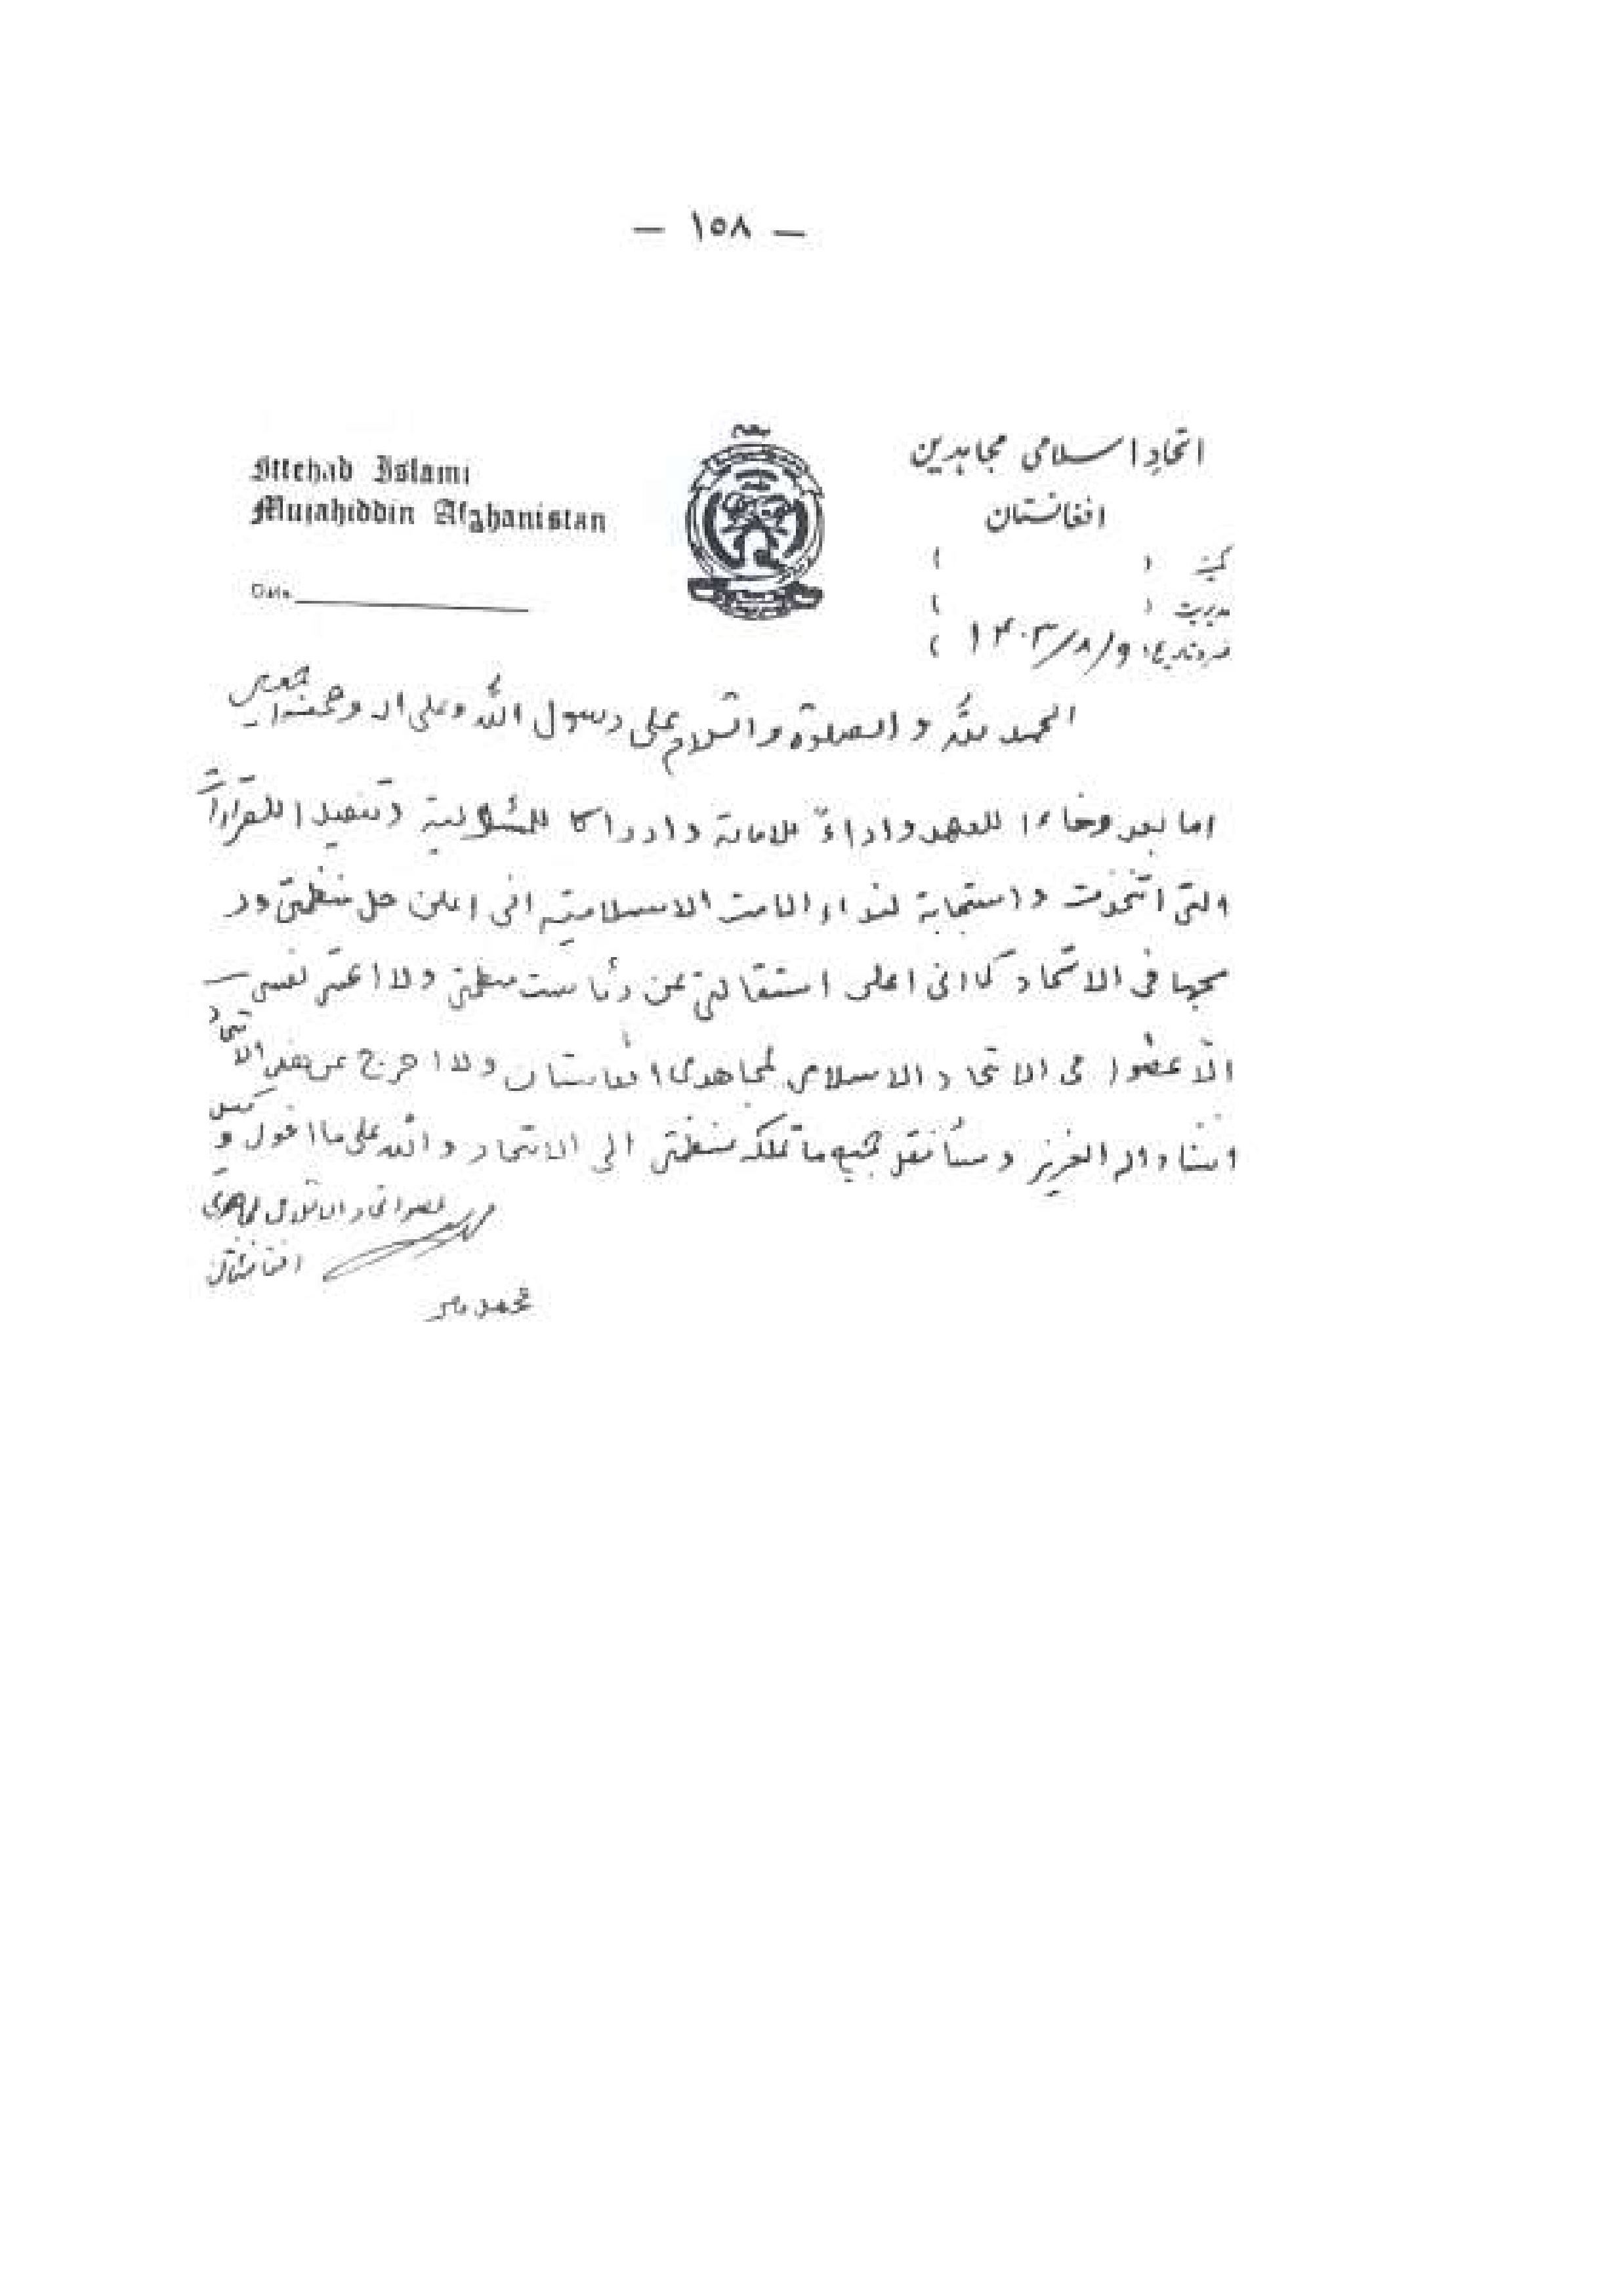 — ١٥٨ —
Ittehad Islami
Mujahiddin Afghanistan
Date
اتحاد اسلامی مجاہدین
افغانستان
کمیتہ ( )
مدیریت ( )
١٤٠٣/٨/٩
الحمد للّه و الصلوة والسّلام على رسول اللّه وعلى اله وصحبه اجمعين
اما بعد وفاءا للعهد واداءً للامانة وادراكا للمسئولية وتنفيذا للقرارات
التى اتخذت واستجابة لنداء الامت الاسلامية انى اعلن حل منظمتى ود
مجها فى الاتحاد كما انى اعلن استقالتى عن رئاست منظمتى ولا اعتبر نفسى
الّا عضوا فى الاتحاد الاسلامى لمجاهدى افغانستان ولا اخرج عن هذا الاتحاد
انشاء الله العزيز وسأنقل جميع ما تملكه منظمتى الى الاتحاد والله على ما اقول وكيل
عضو اتحاد الاسلامى لمجاهدى
افغانستان